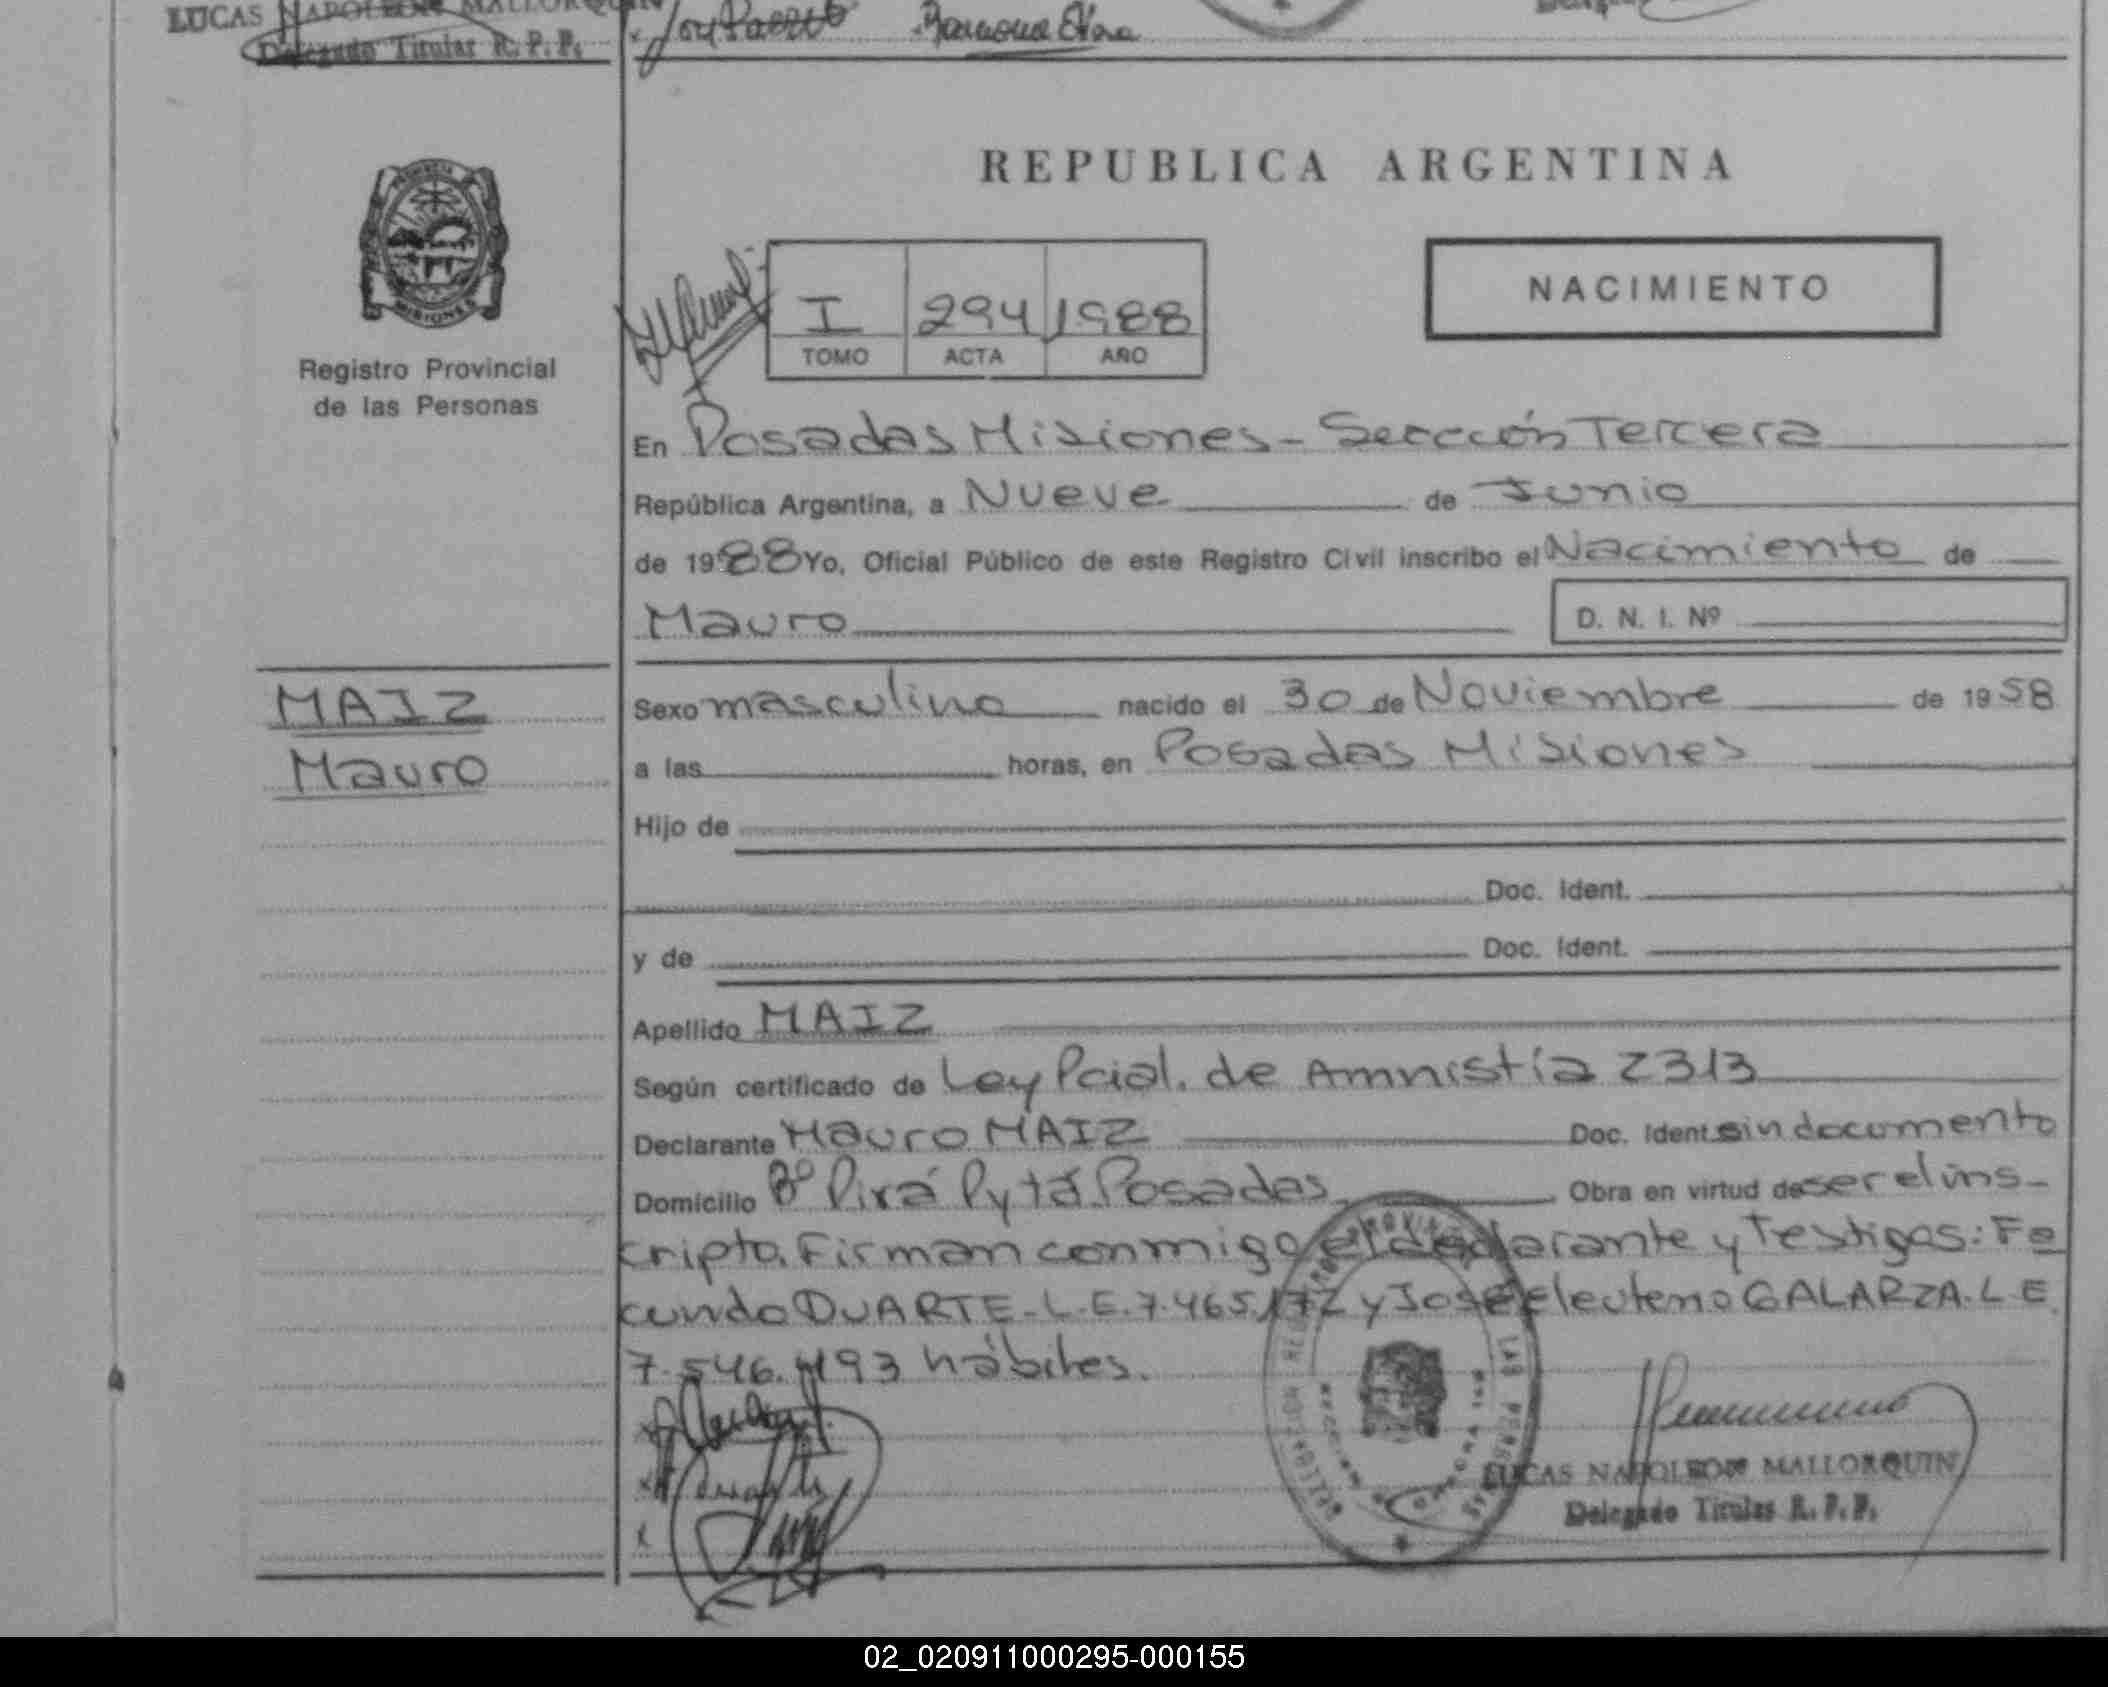 LUCAS NAPOLEON MALLORQUIN
Delegado Titular R. P. P.
REPUBLICA ARGENTINA
PROVINCIA DE
MISIONES
Registro Provincial
de las Personas
I 294 1988
TOMO ACTA AÑO
NACIMIENTO
En Posadas Misiones - Sección Tercera
República Argentina, a Nueve de Junio
de 1988 Yo, Oficial Público de este Registro Civil inscribo el Nacimiento de
Mauro D. N. I. Nº
MAIZ
Mauro
Sexo masculino nacido el 30 de Noviembre de 1958
a las horas, en Posadas Misiones
Hijo de
Doc. Ident.
y de Doc. Ident.
Apellido MAIZ
Según certificado de Ley Pcial. de Amnistía 2313
Declarante Mauro MAIZ Doc. Ident. sin documento
Domicilio Bº Pirá Pytá Posadas Obra en virtud de ser el ins-
cripto. Firman conmigo el declarante y Testigos: Fa
cundo DUARTE - L.E. 7.465.172 y José Eleuterio GALARZA. L.E.
7.546.493 hábiles.
LUCAS NAPOLEON MALLORQUIN
Delegado Titular R. P. P.
02_020911000295-000155